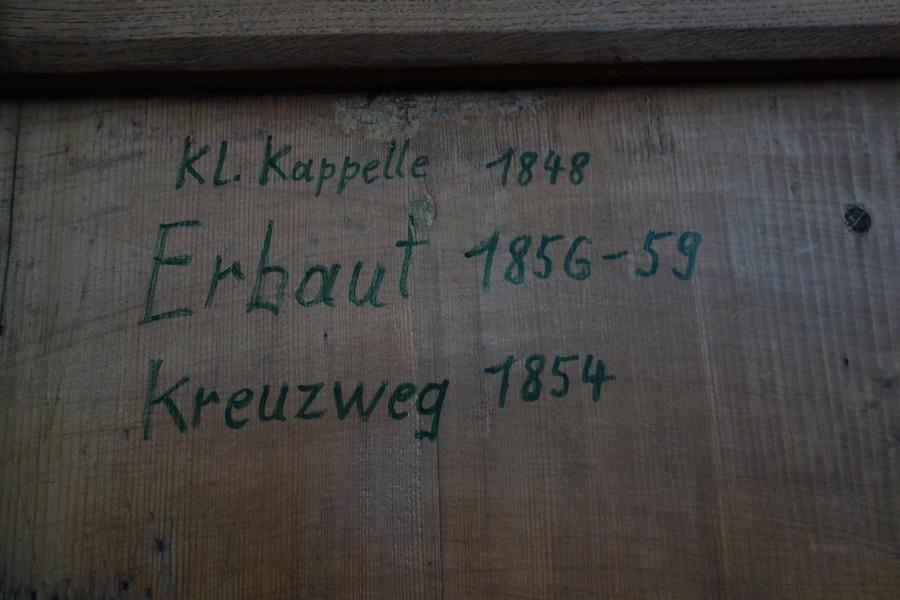 Kl. Kappelle 1848
Erbaut 1856-59
Kreuzweg 1854